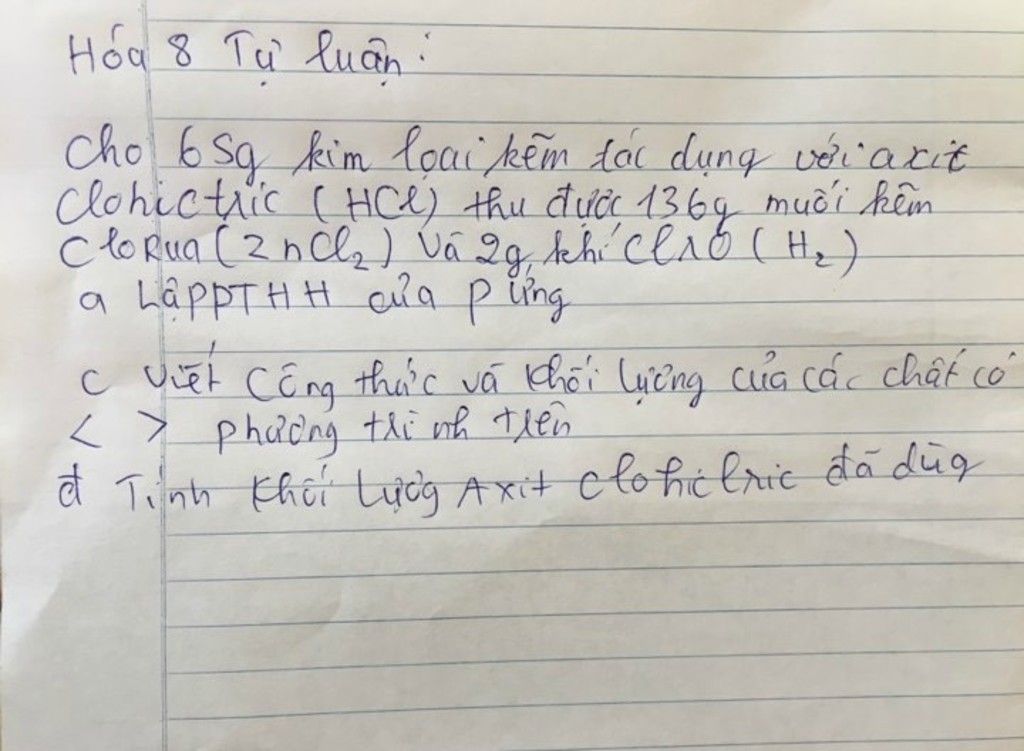 Hóa 8 Tự luận :
Cho 65g kim loại kẽm tác dụng với axit
Clohictric (HCl) thu được 136g muối kẽm
CloRua (ZnCl₂) và 2g khí (H₂)
a Lập PTHH của p ứng
c viết Công thức và khối lượng của các chất có
< > phương trình trên
đ Tính khối lượg Axit clohictric đã dùg